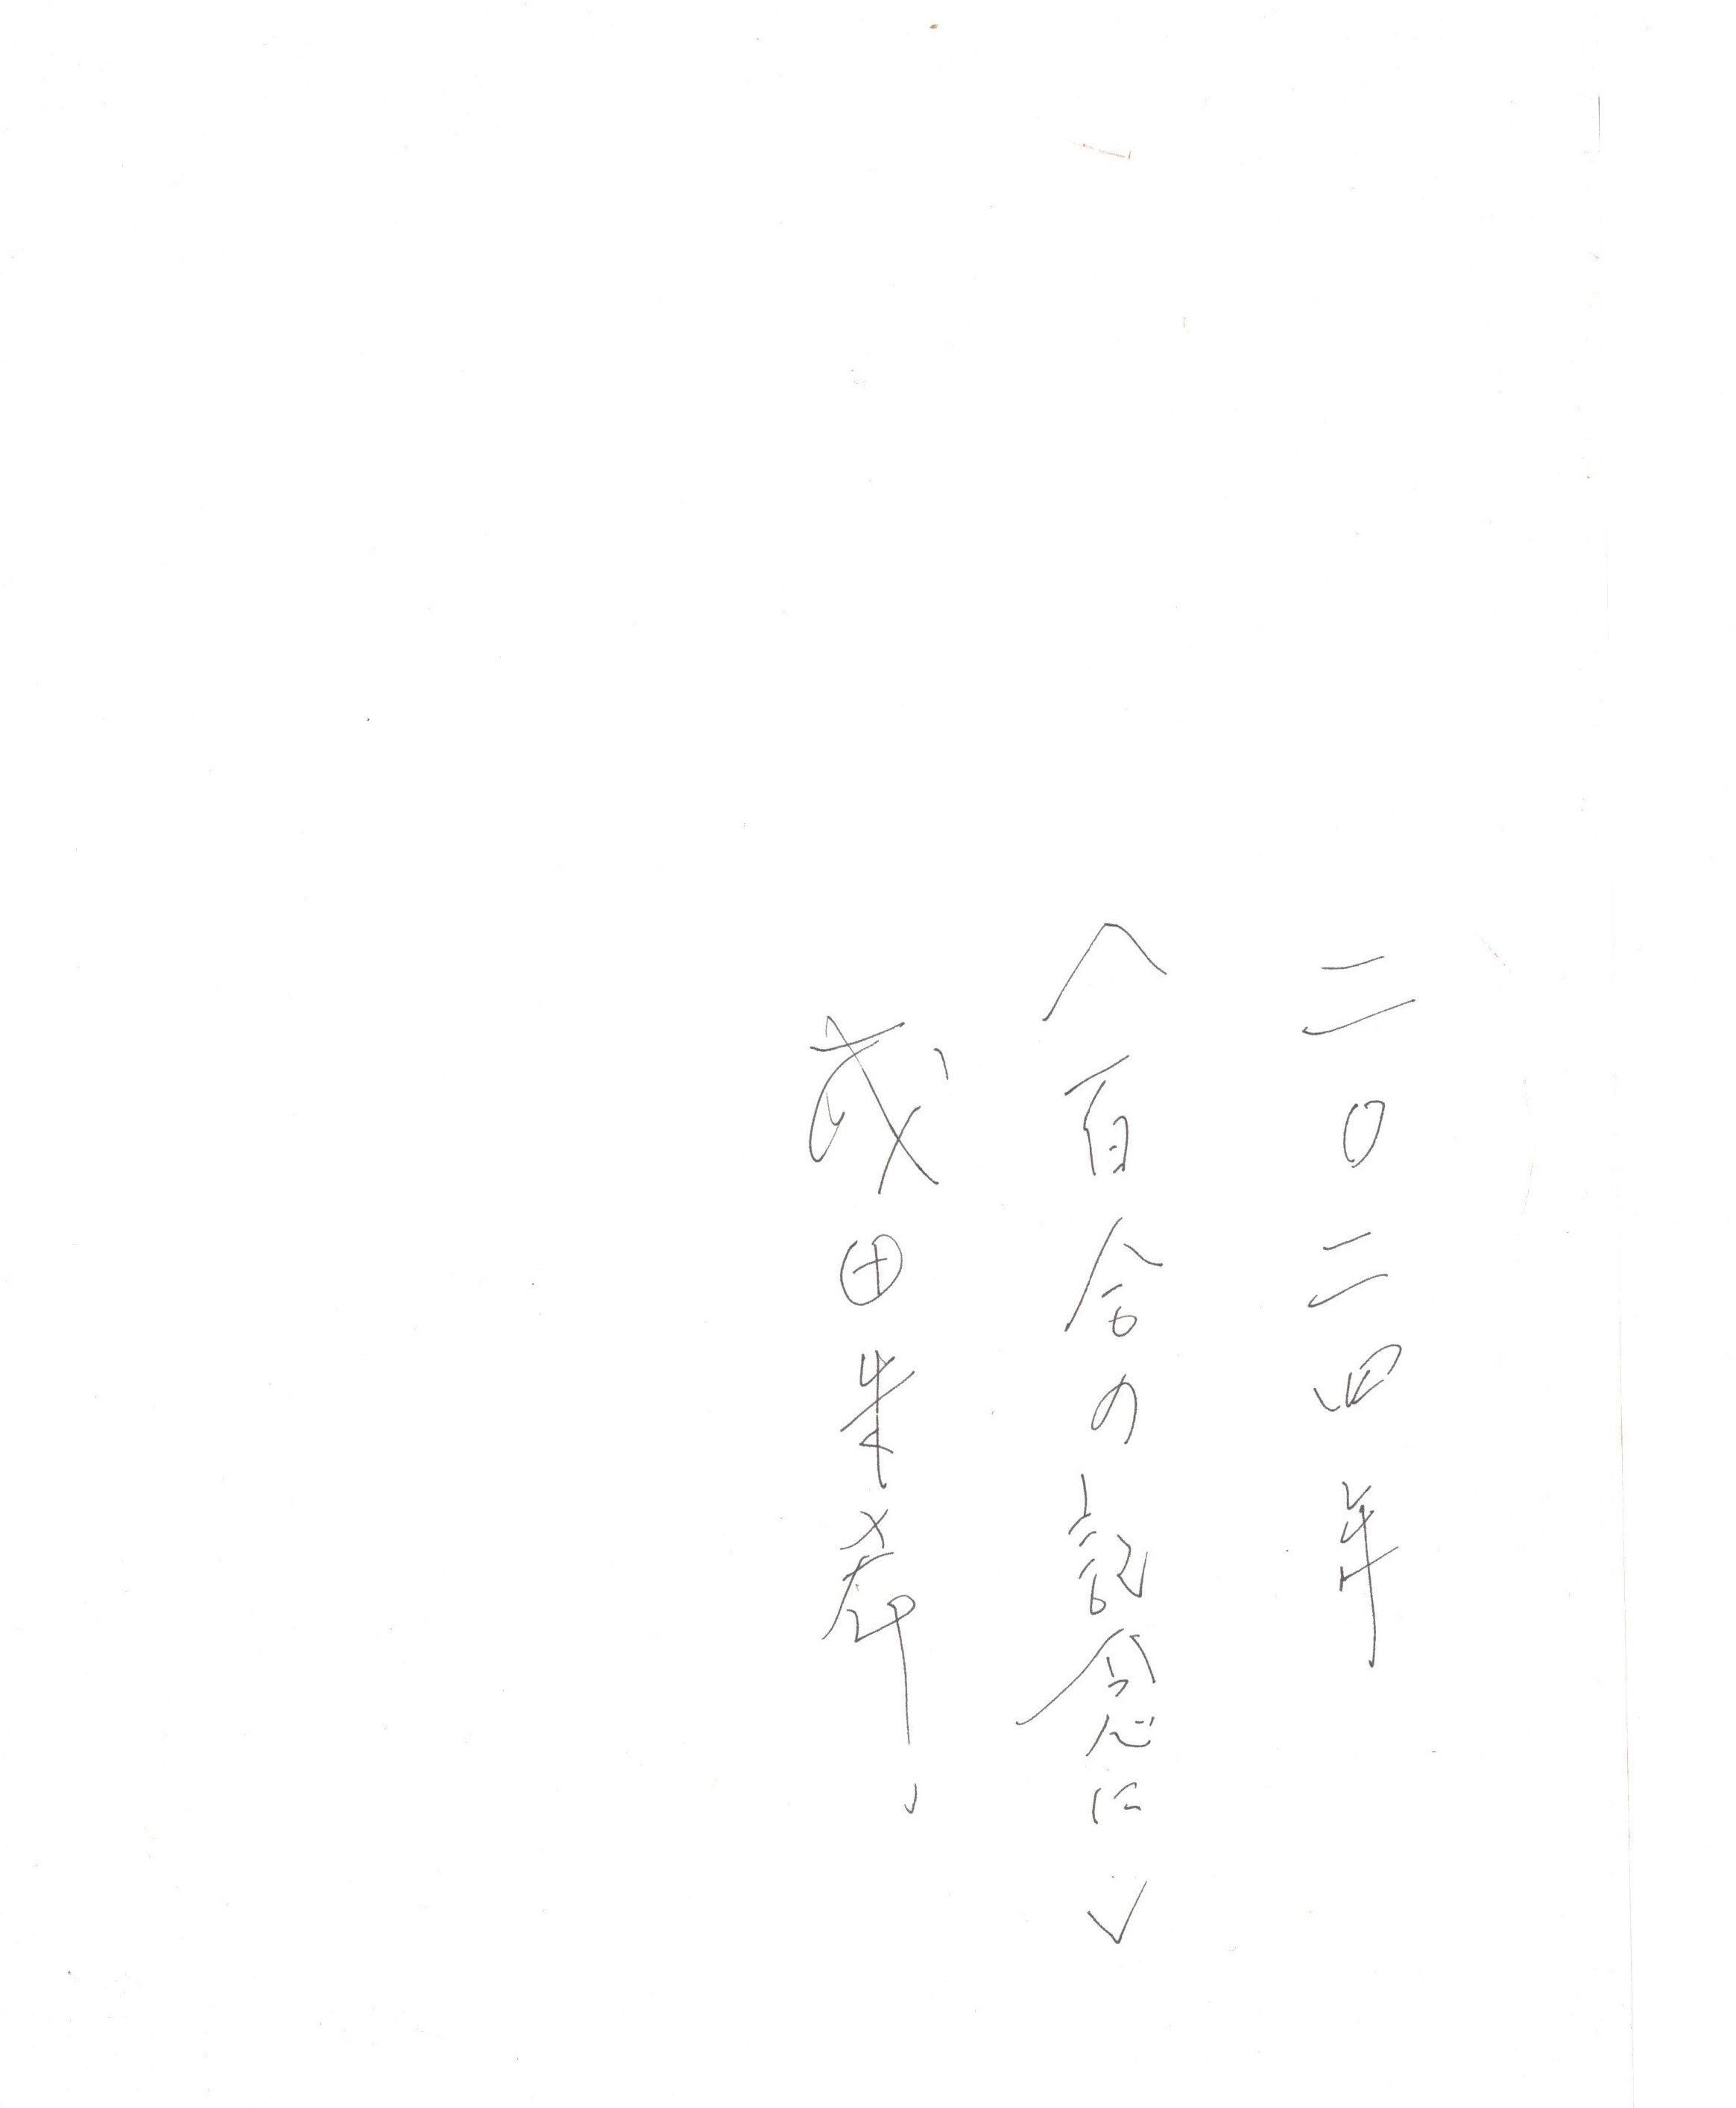 二〇二四年
〈百合の記念に〉
成田朱希